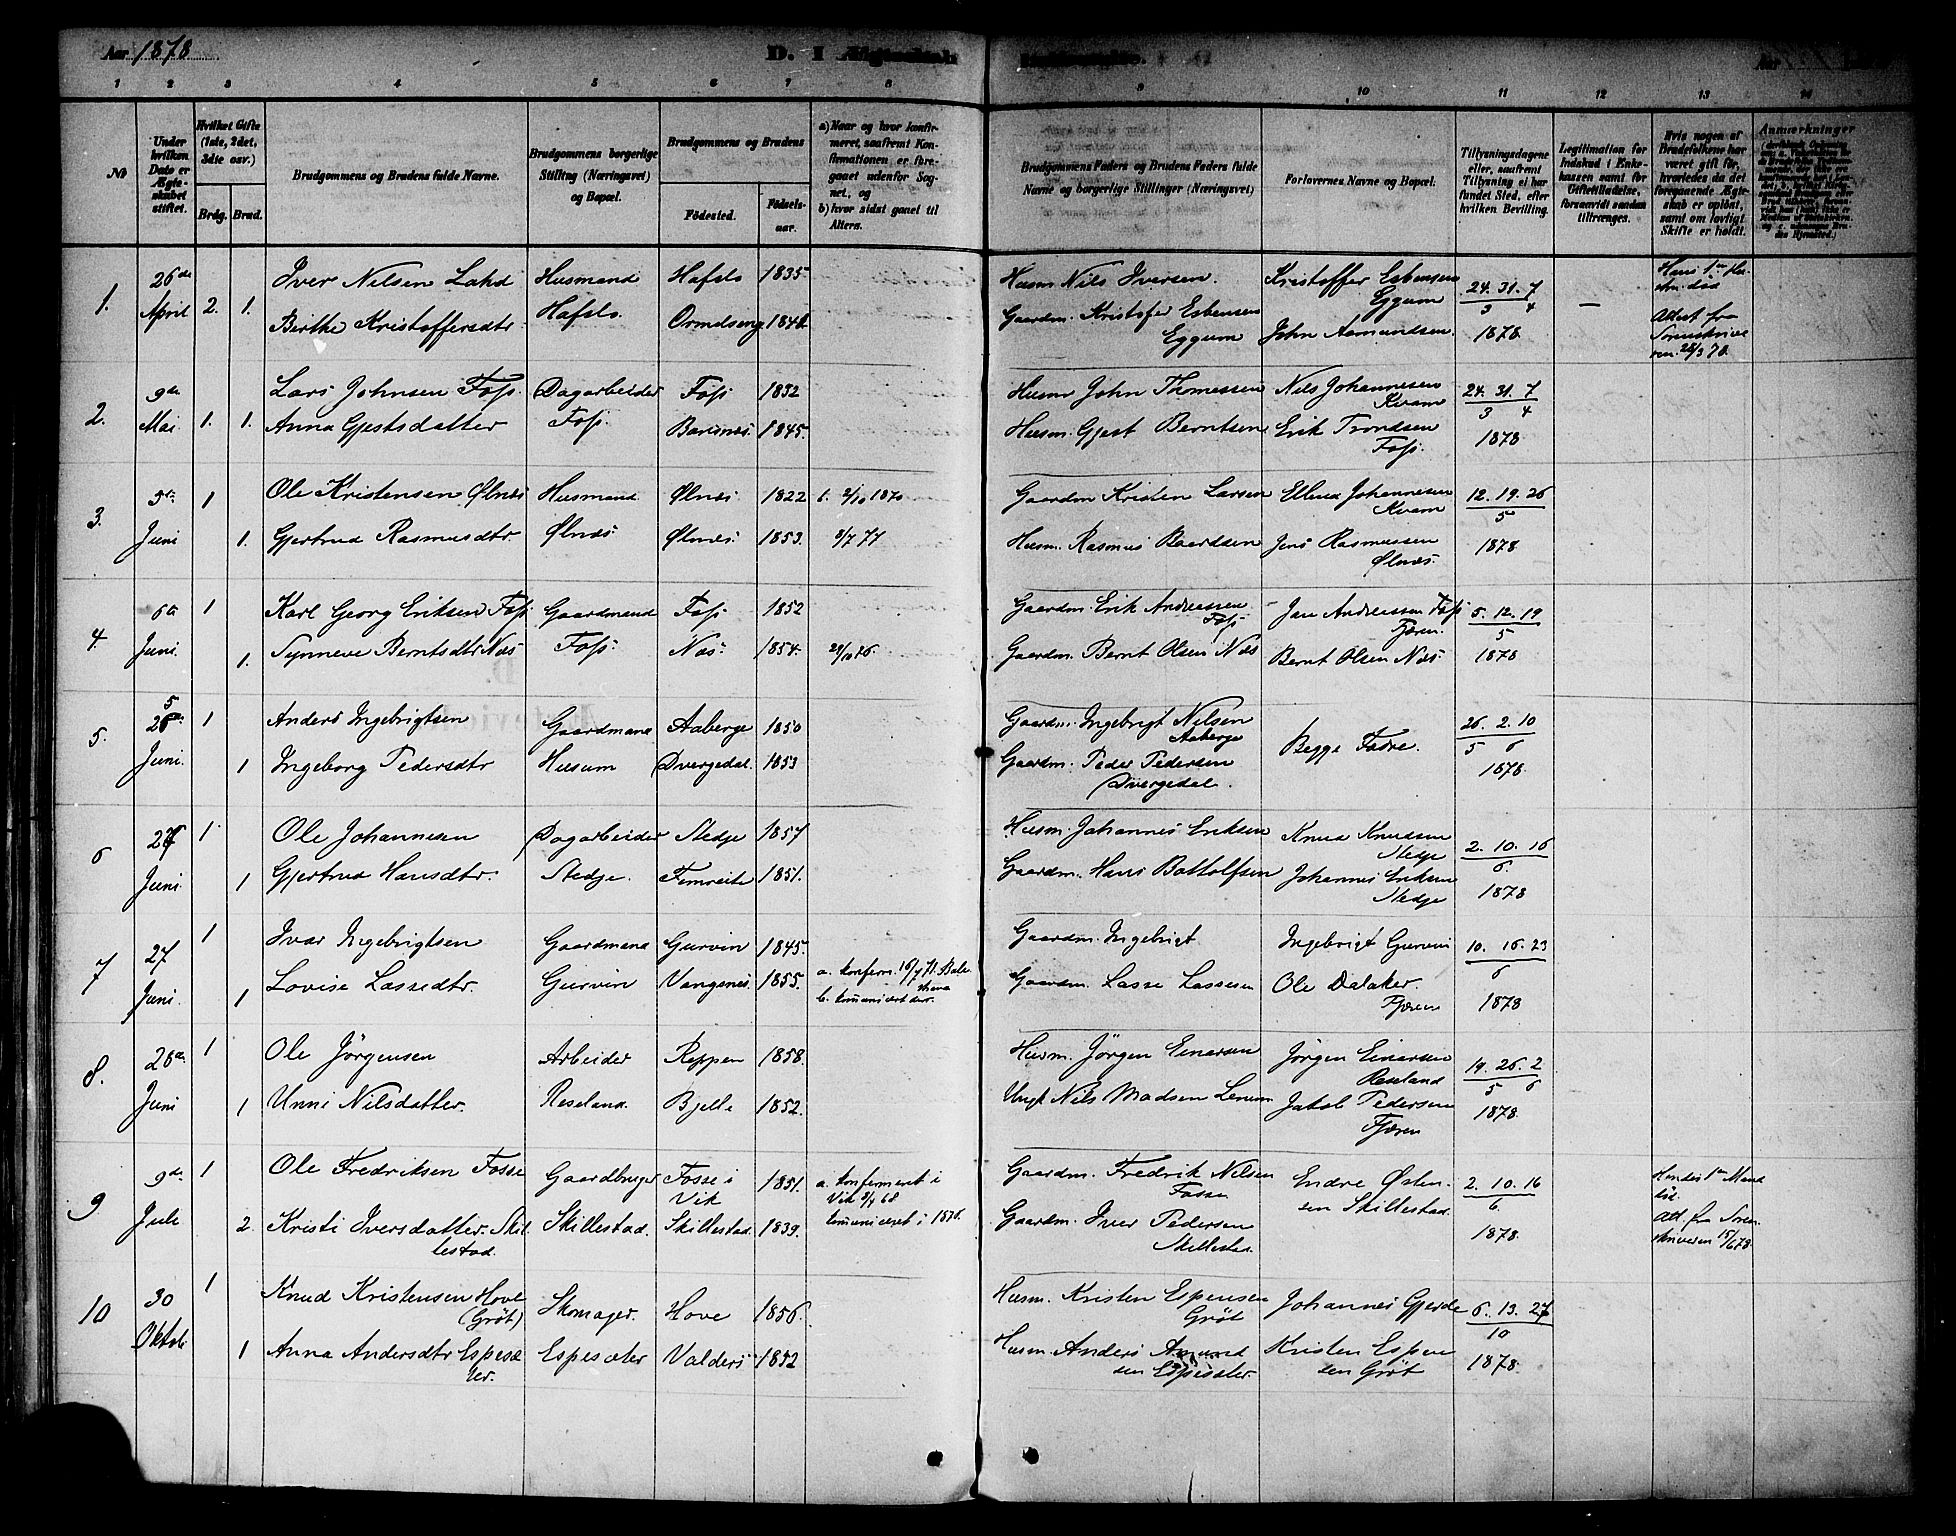 Aar 1878
D. I
Aar
1 2 3 4 5 6 7 8 9 10 11 12 13 14
No
Under hvilken Dato er Ægteskabet stiftet.
Hvilket Gifte (1ste, 2det, 3die osv.)
Brdg. Brud.
Brudgommens og Brudens fulde Navne.
Brudgommens borgerlige Stilling (Næringsvei) og Bopæl.
Brudgommens og Brudens
Fødested. Fødselsaar.
a) Naar og hvor konfirmeret, saafremt Konfirmationen er foregaaet udenfor Sognet, og
b) hvor sidst gaaet til Alters.
Brudgommens Faders og Brudens Faders fulde Navne og borgerlige Stillinger (Næringsvei)
Forlovernes Navne og Bopæl.
Tillysningsdagene eller, saafremt Tillysning ei har fundet Sted, efter hvilken Bevilling.
Legitimation for Indskud i Enkekassen samt for Giftetilladelse, forsaavidt saadan tiltrænges.
Hvis nogen af Brudefolkene har været gift før, hvorledes da det foregaaende Ægteskab er opløst, samt om lovligt Skifte er holdt.
Anmærkninger
1. 26de April 2. 1.
Iver Nilsen Lahd Husmand Hafslo 1835 Husm Nils Iversen. Kristoffer Esbensen Eggum 24. 31. 7
3 4
1878 —
Birthe Kristoffersdtr Hafslo. Ormelseng Gaardm. Kristofer Esbensen Eggum John Aamundsen.
Hans 1ste
død
Attest fra Sorenskriveren. 28/3 78.
2. 9de Mai 1. 1.
Lars Johnsen Foss. Dagarbeider Foss 1832 Husm John Thomessen Nils Johannesen Kvam 24. 31. 7
3 4
1878
Anna Gjestsdatter Foss. 1845. Husm. Gjest Berntsen Erik Trondsen Foss.
3. 5te Juni 1 1.
Ole Kristensen Ølnæs Husmand Ølnæs 1822 b. 2/10 1870 Gaardm Kristen Larsen Johannesen Kvam 12. 19. 26
5
1878
Gjertrud Rasmusdtr Ølnæs Ølnæs. 1853. 8/7 77 Husm. Rasmus Baardsen Jens Rasmussen Ølnæs.
4. 6te Juni. 1 1.
Karl Georg Eriksen Foss Gaardmand Foss 1852 Gaardm. Erik Andreassen Foss Jan Andreassen Foss Fjæren. 5. 12. 19
5
1878
Synneve Berntsdtr Næs Foss. Næs. 1854. 29/10 76. Gaardm. Bernt Olsen Næs Bernt Olsen Næs.
5. 25 Juni. 1 1
Anders Ingebrigtsen Gaardmand Aaberge 1850 Gaardm. Ingebrigt Nilsen Aaberge Begge Fædre. 26. 2. 10
5 6
1878.
Ingeborg Pedersdtr Husum Dvergedal. 1853 Gaardm. Peder Pedersen Dvergedal.
6 Juni. 1. 1
Ole Johannesen Dagarbeider Stedje 1857 Husm. Johannes Eriksen Knud Knudsen Stedje 2. 10. 16
6.
1878
Gjertrud Hansdtr. Stedje. Fimreite 1851. Gaardm. Hans Bottolfsen Johannes Eriksen Stedje
7 27 Juni 1 1
Ivar Ingebrigtsen Gaardmand Gurvin 1845. Gaardm. Ingebrigt Ingebrigt Gurvin 10. 16. 23
6
1878
Lovise Lassedtr. Gurvin Vangsnes. 1855. a. konferm. 16/7 71. Bale
b. der. Gaardm. Lasse Lassesen Ole Dalaker. Fjæren
8. 26de Juni 1 1
Ole Jörgensen Arbeider Reppen 1858. Husm. Jörgen Einarsen Jörgen Einarsen Reseland 19. 26. 2
5 6
1878.
Unni Nilsdatter. Reseland. Bjelle 1852. Ungk Nils Madsen Lerum Jakob Pedersen Fjæren
9 9de Jule 1 2.
Ole Fredriksen Fosse Gaardbruger Fosse i Vik 1851. a. konfermeret i Vik 8/4 68 Gaardm. Fredrik Nilsen Fosse Endre Østensen Skillestad. 2. 10. 16
6.
1878.
Kristi Iversdatter. Skillestad. Skillestad. Skillestad. 1839. i 1876. Gaardm. Iver Pedersen Skillestad.
Hendes 1ste Mand
Att. fra Sorenskriveren 15/6 78.
10 30 Oktob 1 1
Knud Kristensen Hove (Grøt) Skomager. Hove 1856. Husm. Kristen Espensen Grøt Johannes Gjerde 6. 13. 27
10
1878.
Anna Andersdtr Espesæter. Espesæter Valders 1852 Husm. Anders Amundsen Espesæter. Kristen Espensen Grøt